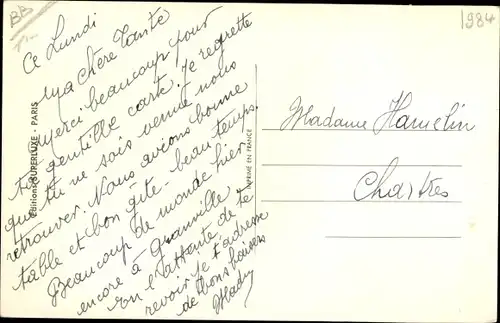 BB
1984
Ce Lundi
ma chère Tante
Merci beaucoup pour
ta gentille carte. je regrette
que tu ne sois venue nous
retrouver. Nous avions bonne
table et bon gîte - beau temps.
Beaucoup de monde hier
encore à Granville
En l'attente de te
revoir je t'adresse
de bons baisers
Mady
Editions SUPERLUXE - PARIS
IMPRIMÉ EN FRANCE
Madame Hamelin
Chartres